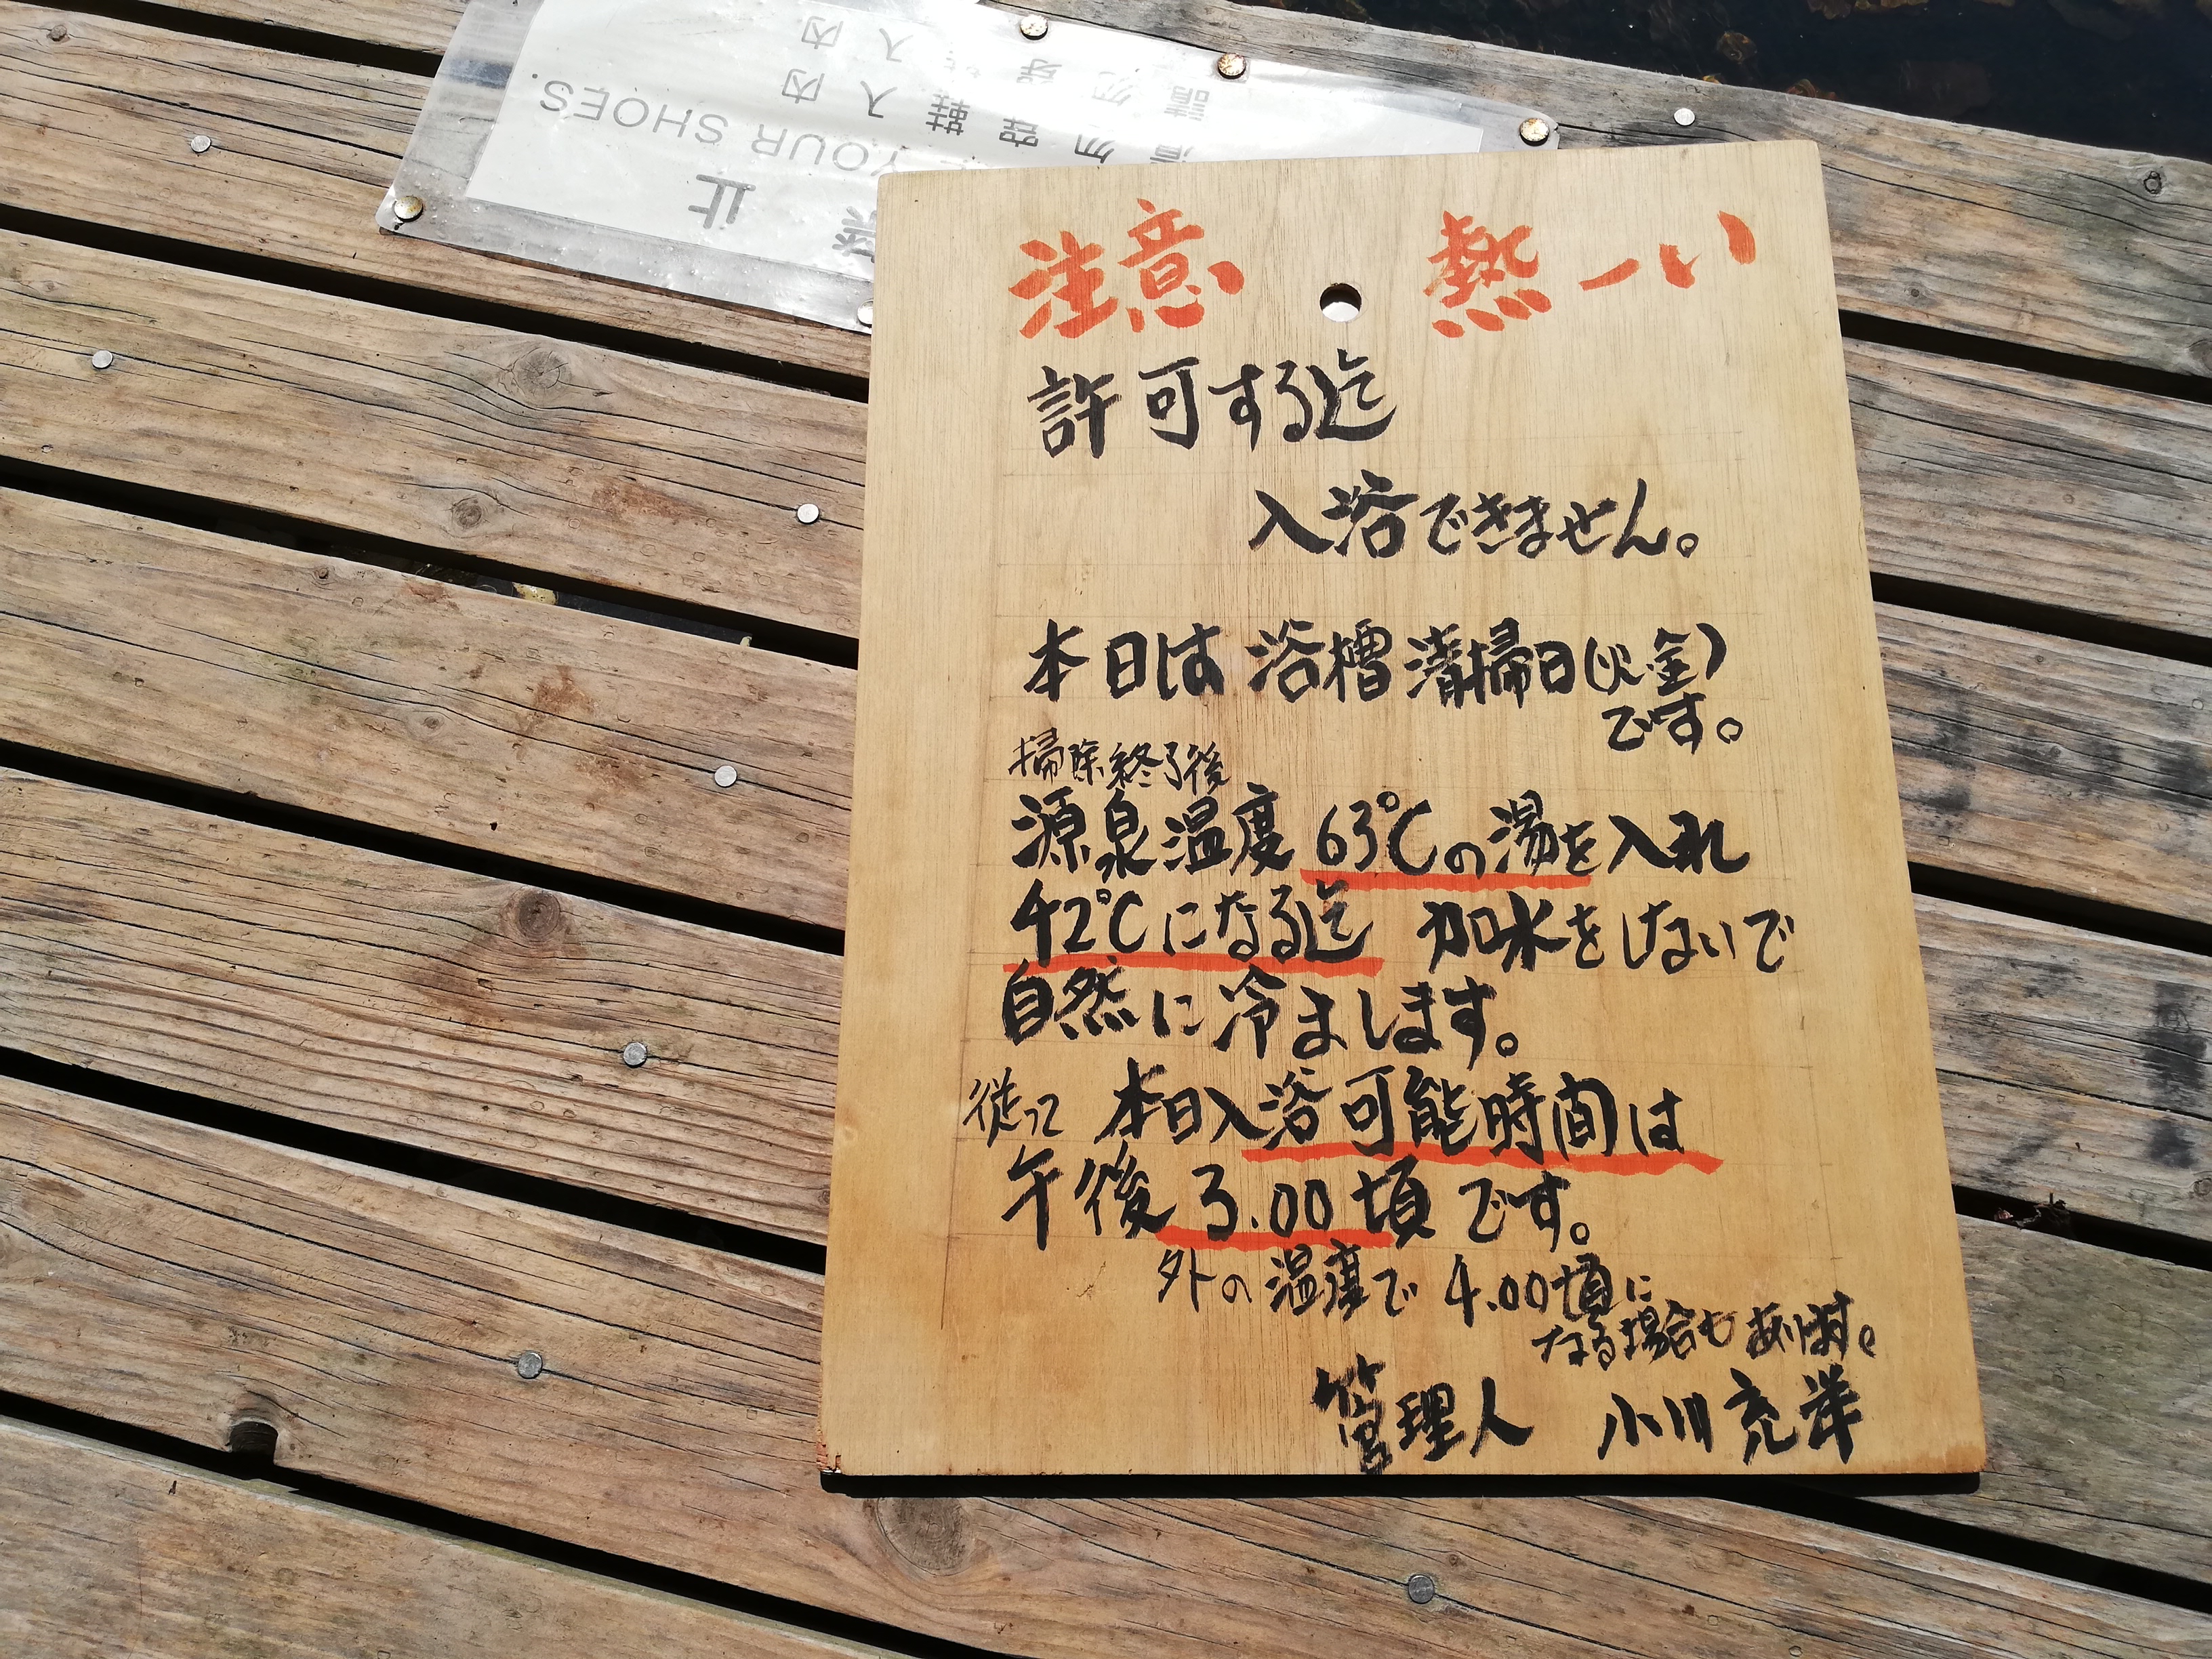 注意 熱ーい
許可する迄
入浴できません。
本日は浴槽清掃日(火・金)
です。
掃除終了後
源泉温度63℃の湯を入れ
42℃になる迄 加水をしないで
自然に冷まします。
従って 本日入浴可能時間は
午後3.00頃です。
外の温度で4.00頃に
なる場合もあります。
管理人 小川充洋
止
YOUR SHOES.
鞋入内